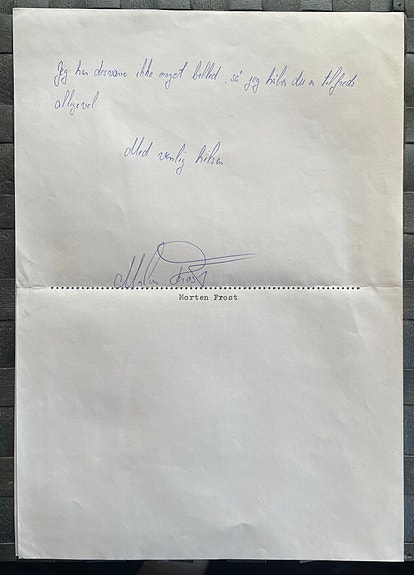 Jeg har desværre ikke noget billed, så jeg håber du er tilfreds
alligevel
Med venlig hilsen
Morten Frost
Morten Frost